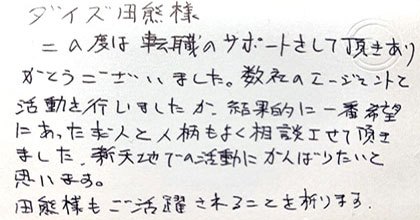 ダイズ田熊様
この度は転職のサポートをして頂きあり
がとうございました。数社のエージェントと
活動を行いましたが、結果的に一番希望
にあった求人と人柄もよく相談させて頂き
ました。新天地での活動にがんばりたいと
思います。
田熊様もご活躍されることを祈ります。